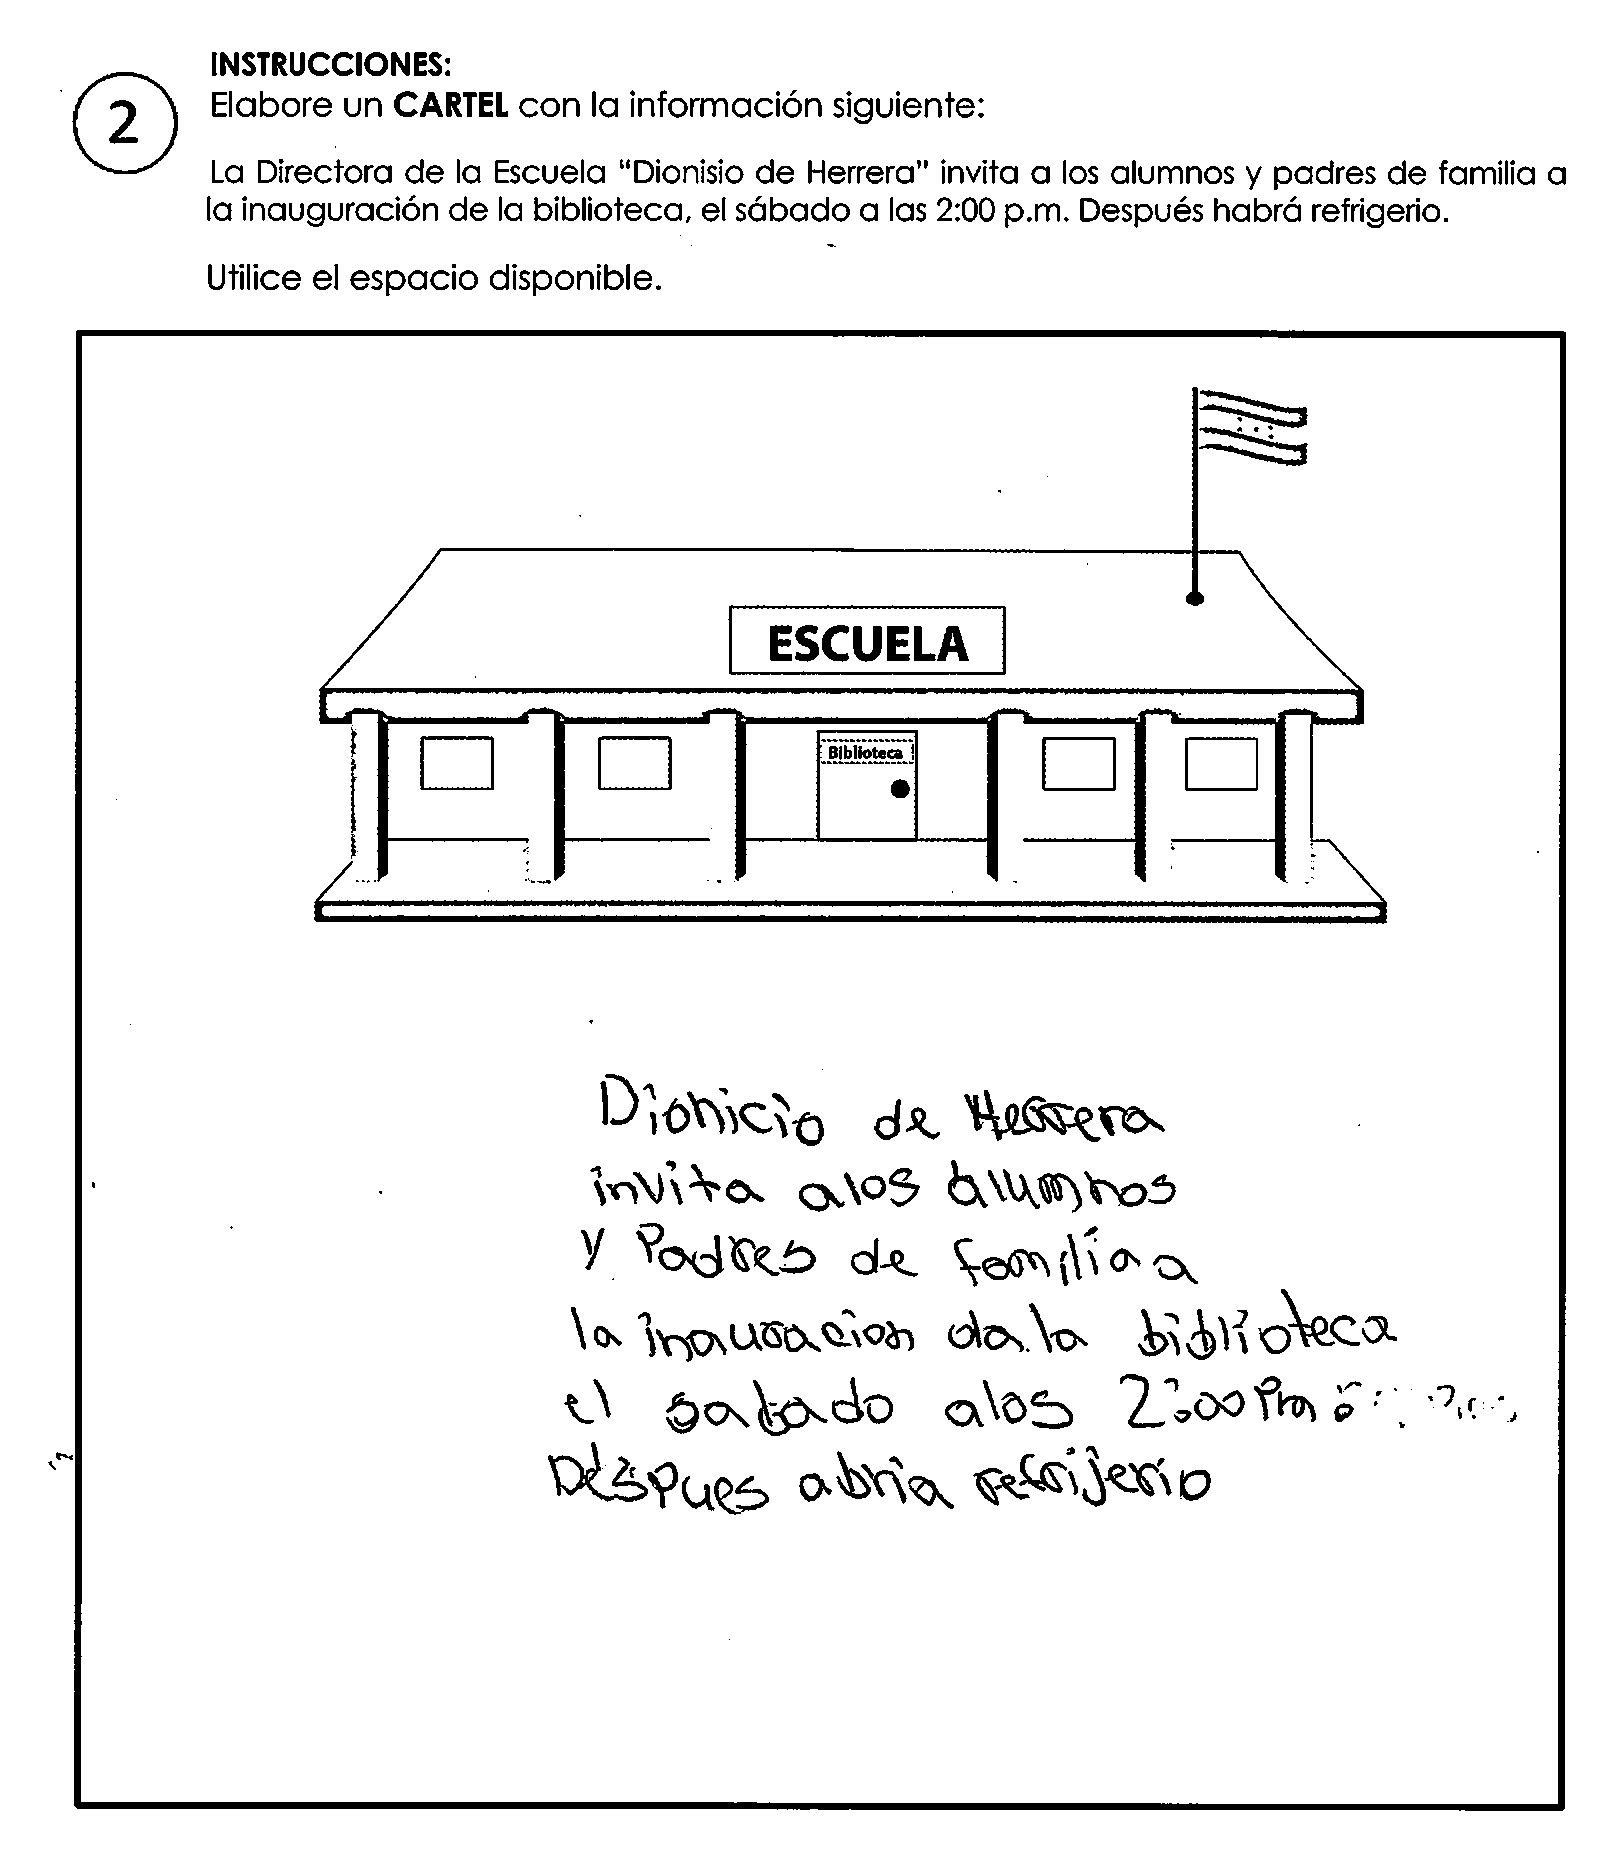 INSTRUCCIONES:
2
Elabore un CARTEL con la información siguiente:
La Directora de la Escuela “Dionisio de Herrera” invita a los alumnos y padres de familia a
la inauguración de la biblioteca, el sábado a las 2:00 p.m. Después habrá refrigerio.
Utilice el espacio disponible.
ESCUELA
Biblioteca
Dionicio de Herrera
invita alos alumnos
y Padres de familia a
la inauracion da la biblioteca
el sabado alos 2:00 Pm
Despues abria refrijerio